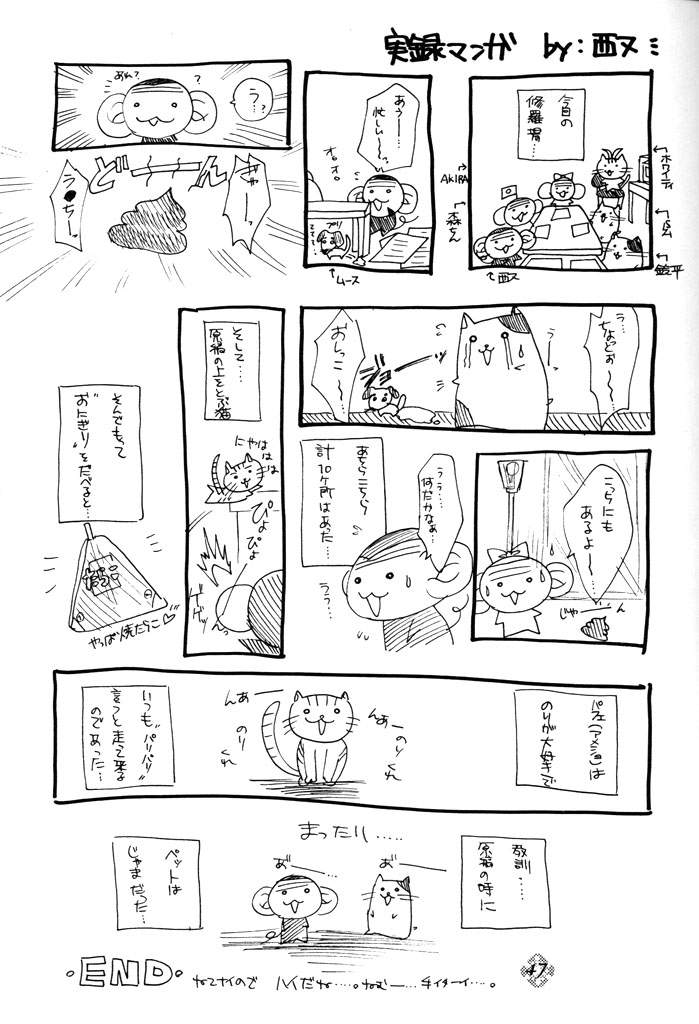 実録マンガ by:西ヌミ
今日の
修羅場…
←ホワイティ
AKIRA
←森ちん
←西ヌ
あぅ――
忙しぃ～～っ
オロ。
オロ。
プリ
←ムース
う…?
あれ?
?
?
ぎゃ――っ
どーーん
う●ち――っ
う…
などどぉ
～～
う～
おしっこ
～～
こっちにも
あるよ～～
じゃーん
うぅ…
何だかなぁ…
あちらこちら
計10ヶ所はあった…
うぅ…
そして…
原稿の上をとぶ猫
にゃははは
ぴょ
ぴょ
ぴょ
ゲゲッ
そんでもって
"おにぎり"をたべると…
やっぱ焼たらこ♡
パフェ(アメショ)は
のりが大好きで
んぁー
のりくれ
んぁー
のり
くれ
いつも"パリパリ"
言うと走って来る
のであった…
まったり……
教訓……
原稿の時に
ペットは
じゃまだった…
あ゛ー
あ゛ー
・END・
ねてナイので ハイだね…。ねむ――…手イターイ…。
47